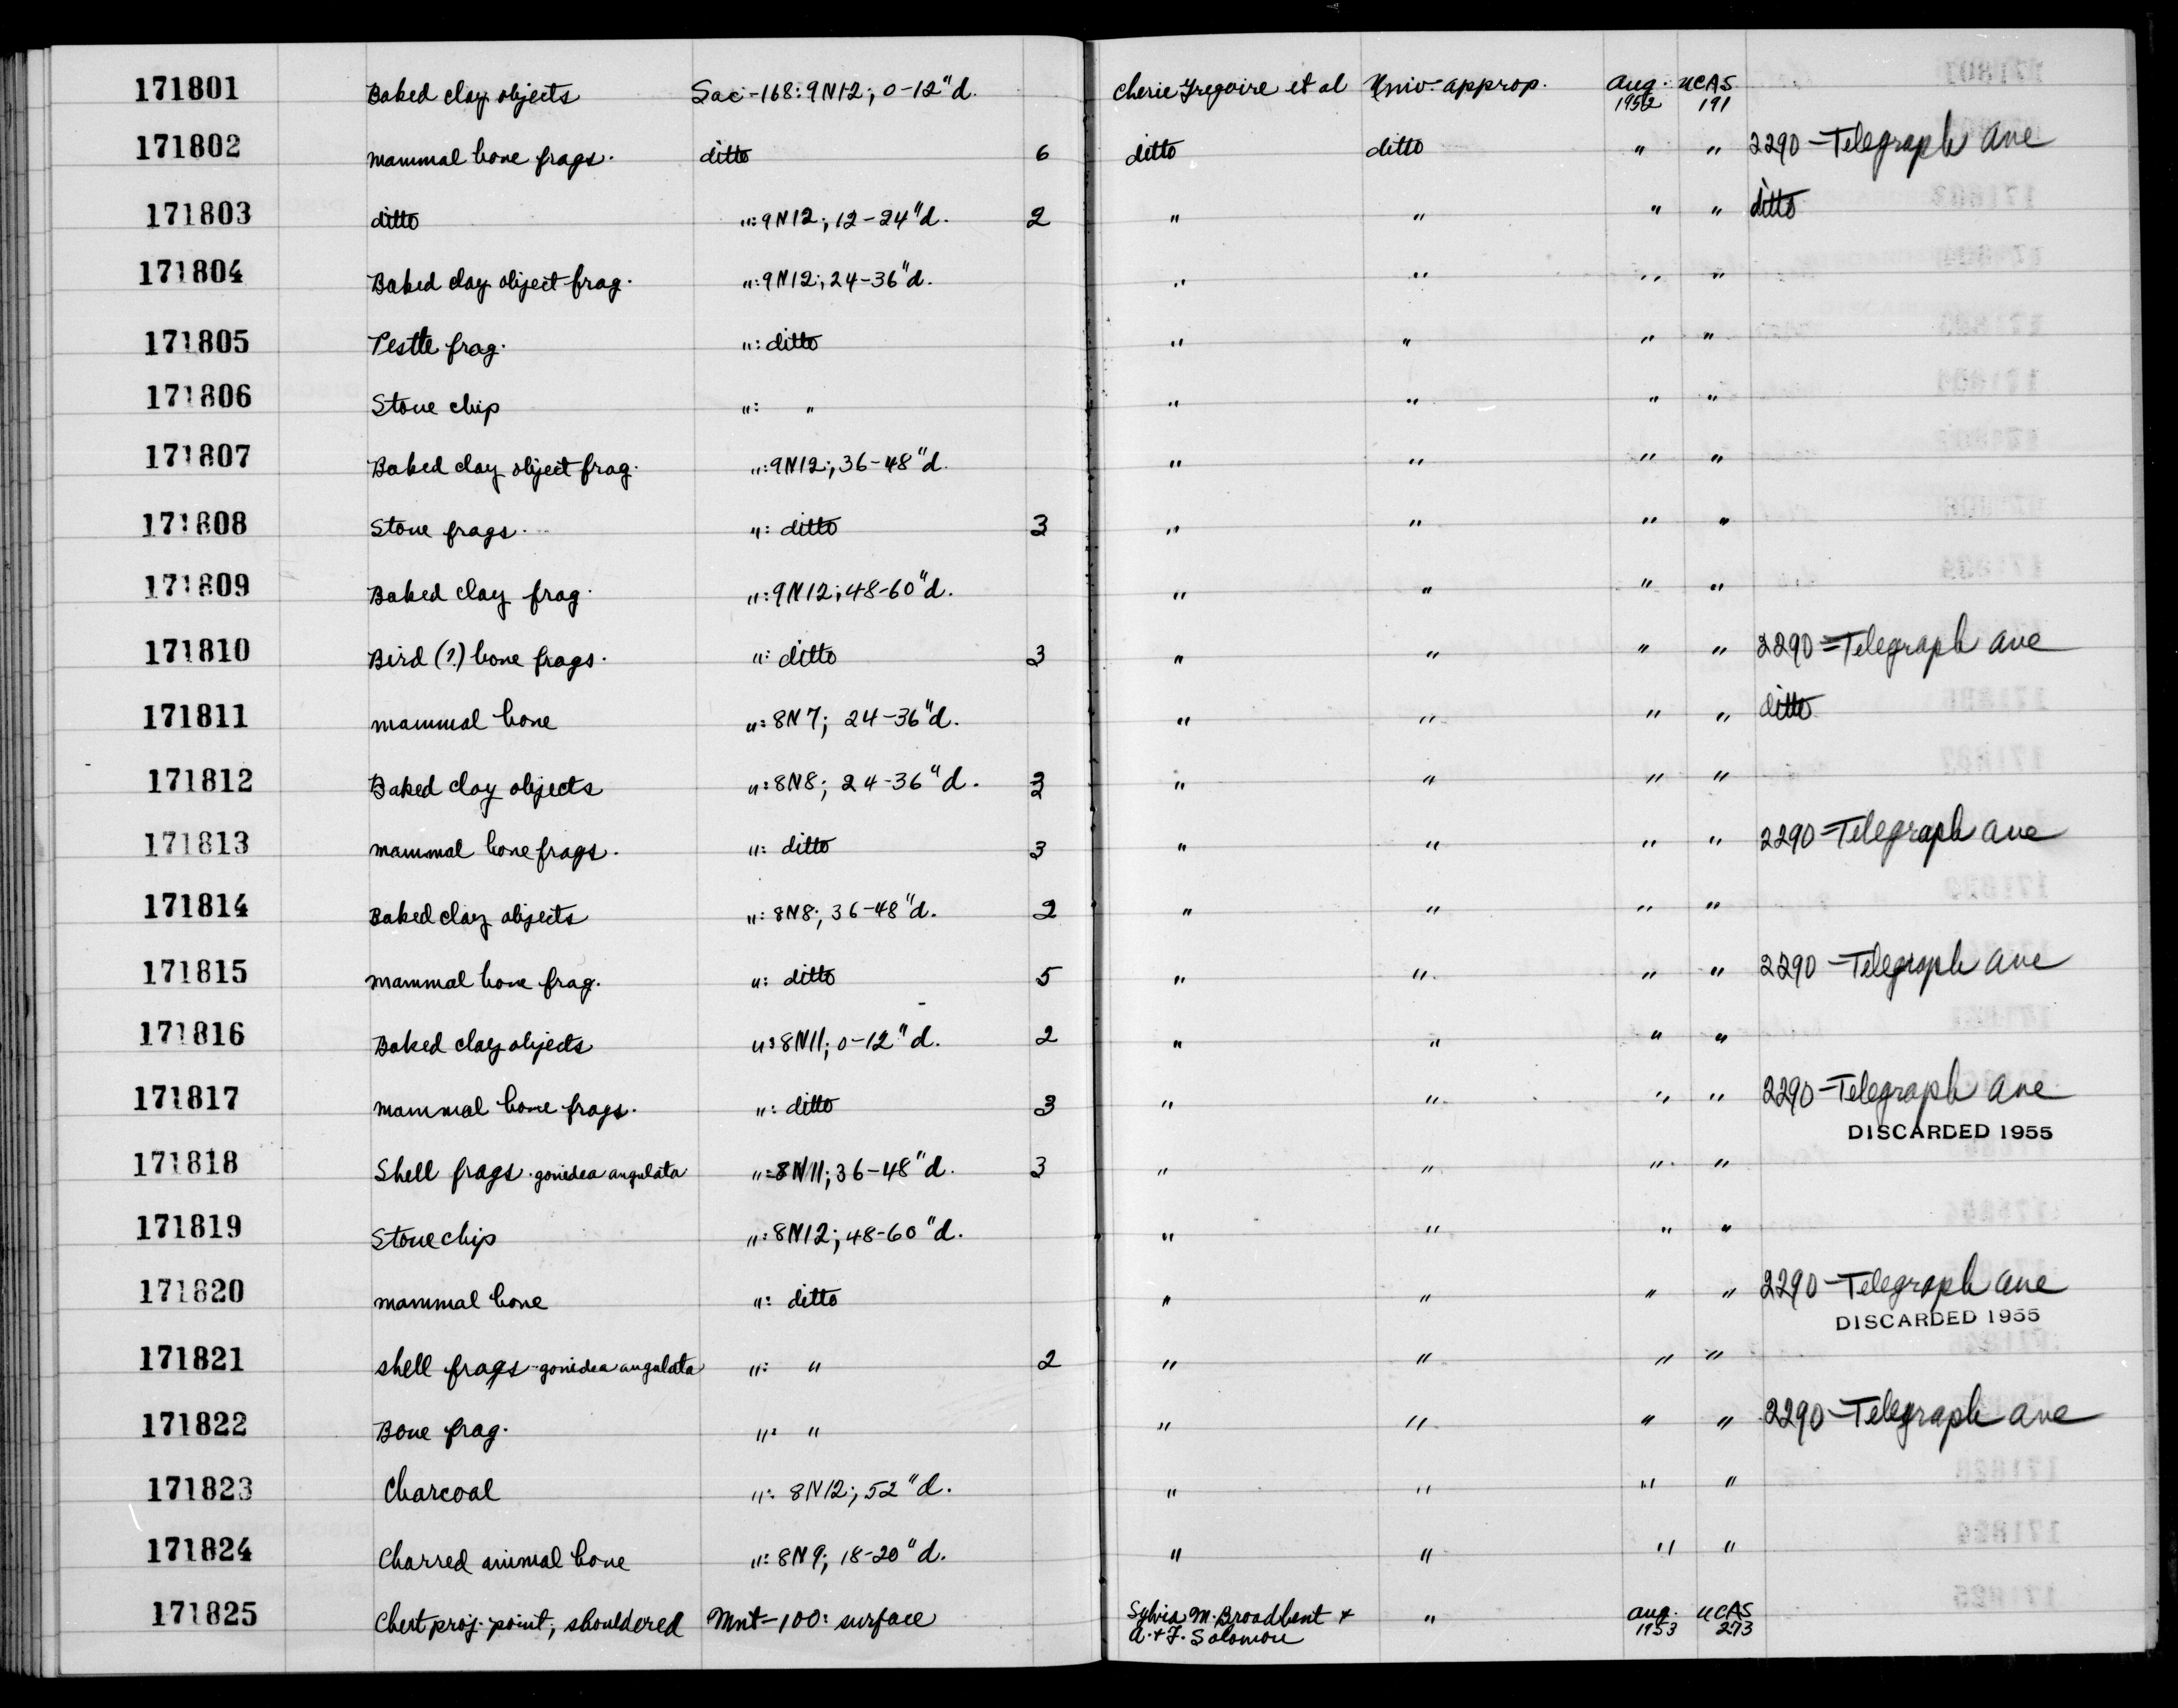 171801 Baked clay objects Sac-168: 9N12; 0-12"d. Cherie Gregoire et al Univ. approp. Aug. 1952 UCAS 191
171802 mammal bone frags. ditto 6 ditto ditto " " 2290-Telegraph Ave
171803 ditto ": 9N12; 12-24"d. 2 " " " " ditto
171804 Baked clay object frag. ": 9N12; 24-36"d. " " " "
171805 Pestle frag. ": ditto " " " "
171806 Stone chip ": " " " " "
171807 Baked clay object frag. ": 9N12; 36-48"d. " " " "
171808 Stone frags. ": ditto 3 " " " "
171809 Baked clay frag. ": 9N12; 48-60"d. " " " "
171810 Bird (?) bone frags. ": ditto 3 " " " " 2290=Telegraph Ave
171811 mammal bone ": 8N7; 24-36"d. " " " " ditto
171812 Baked clay objects ": 8N8; 24-36"d. " " " "
171813 mammal bone frags. ": ditto 3 " " " " 2290-Telegraph Ave
171814 Baked clay objects ": 8N8; 36-48"d. 2 " " " "
171815 mammal bone frag. ": ditto 5 " " " " 2290-Telegraph Ave
171816 Baked clay objects ": 8N11; 0-12"d. 2 " " " "
171817 mammal bone frags. ": ditto 3 " " " " 2290-Telegraph Ave
DISCARDED 1955
171818 Shell frags. gonidea angulata ": 8N11; 36-48"d. 3 " " " "
171819 Stone chip ": 8N12; 48-60"d. " " " "
171820 mammal bone ": ditto " " " " 2290-Telegraph Ave
DISCARDED 1955
171821 shell frags-gonidea angulata ": " 2 " " " "
171822 Bone frag. ": " " " " " 2290-Telegraph Ave
171823 Charcoal ": 8N12; 52"d. " " " "
171824 Charred animal bone ": 8N9; 18-20"d. " " " "
171825 Chert proj. point, shouldered Mnt-100: surface Sylvia M. Broadbent + " Aug. UCAS
A. + F. Solomon 1953 273